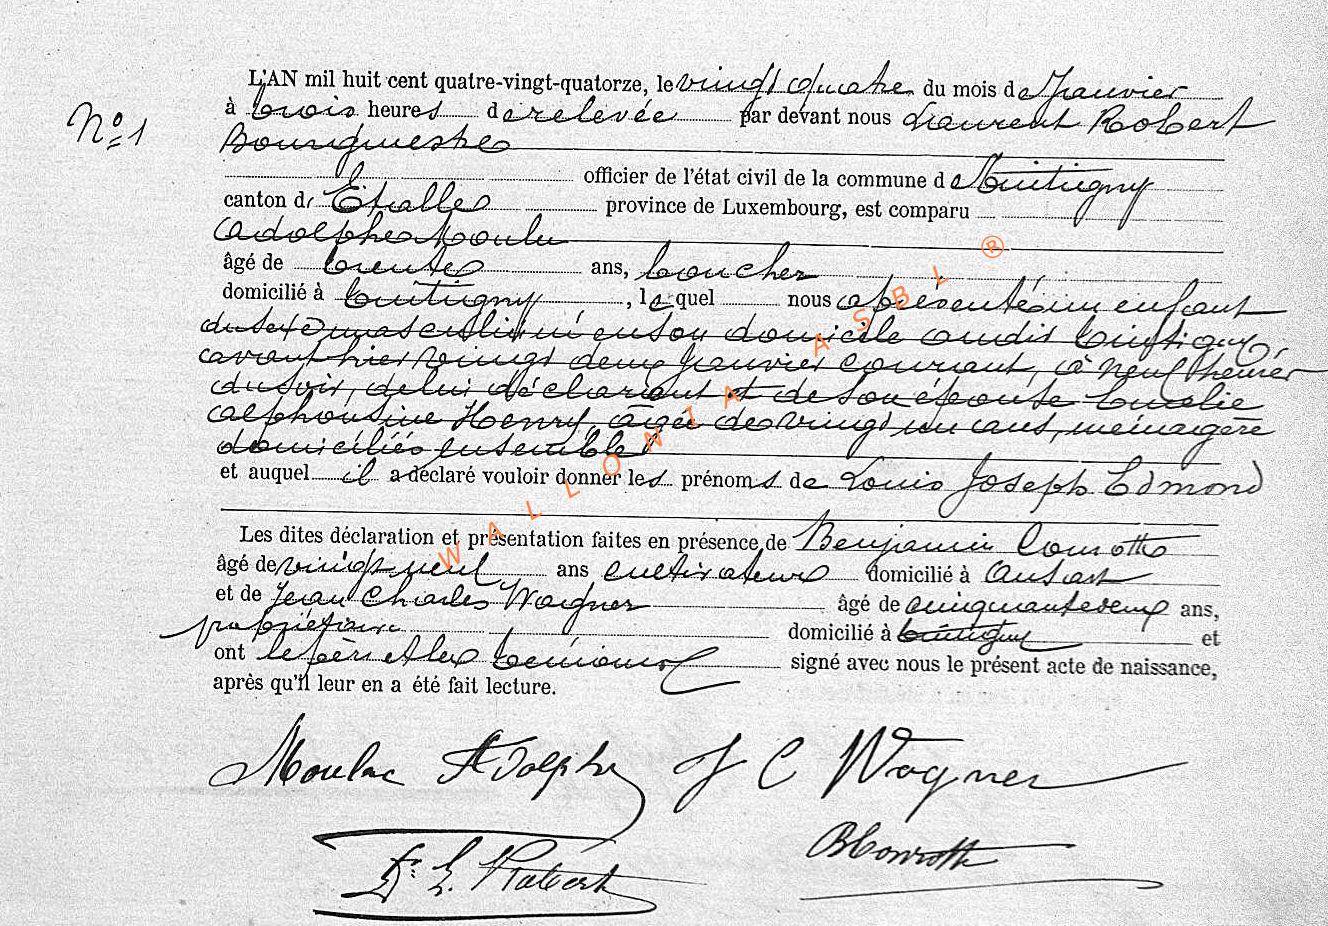 L'AN mil huit cent quatre-vingt-quatorze, le vingt quatre du mois de Janvier
N° 1
à trois heures de relevée par devant nous Laurent Robert
Bourgmestre
officier de l'état civil de la commune de Tintigny
canton d' Etalle province de Luxembourg, est comparu
Adolphe Moulu
âgé de trente ans, boucher
domicilié à Tintigny, lequel nous a présenté un enfant
du sexe masculin, né en son domicile audit Tintigny,
avant hier vingt deux Janvier courant, à neuf heures
du soir, de lui déclarant et de son épouse Emelie
Alphonsine Henry, âgée de vingt un ans, ménagère
domiciliés ensemble
et auquel il a déclaré vouloir donner les prénoms de Louis Joseph Edmond
Les dites déclaration et présentation faites en présence de Benjamin Conrotte
âgé de vingt neuf ans cultivateur domicilié à Ansart
et de Jean Charles Wagner âgé de cinquante deux ans,
propriétaire domicilié à Tintigny et
ont le père et les témoins signé avec nous le présent acte de naissance,
après qu'il leur en a été fait lecture.
Adolphe J C Wagner
B Conrotte
Dr L. Robert
WALLONIA ASBL ®